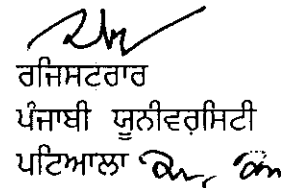 ਰਜਿਸਟਰਾਰ
ਪੰਜਾਬੀ ਯੂਨੀਵਰਸਿਟੀ
ਪਟਿਆਲਾ